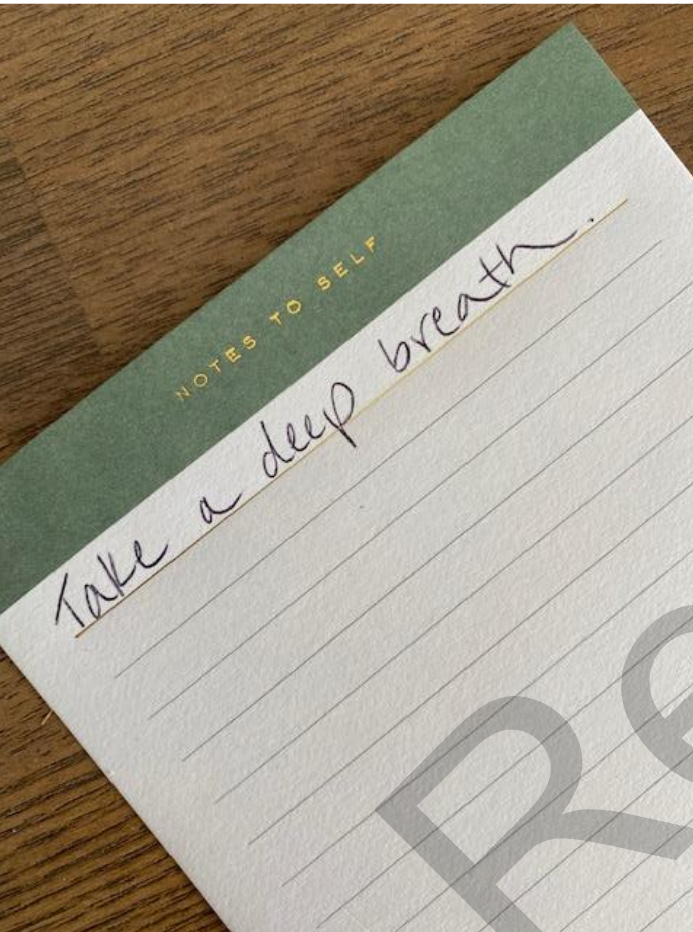 NOTES TO SELF
Take a deep breath.
Re